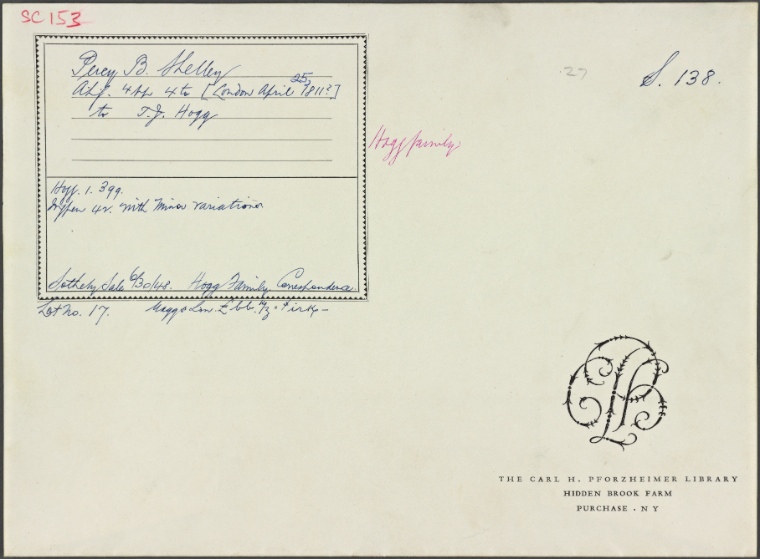 SC 153
Percy B. Shelley
25,
4to [London April 1811?]
to T. J. Hogg
27
S. 138.
Hogg family
Hogg. 1. 399.
with Minor variations
Sotheby Sale 6/30/48. Hogg Family Correspondence
Lot No. 17.
THE CARL H. PFORZHEIMER LIBRARY
HIDDEN BROOK FARM
PURCHASE . NY